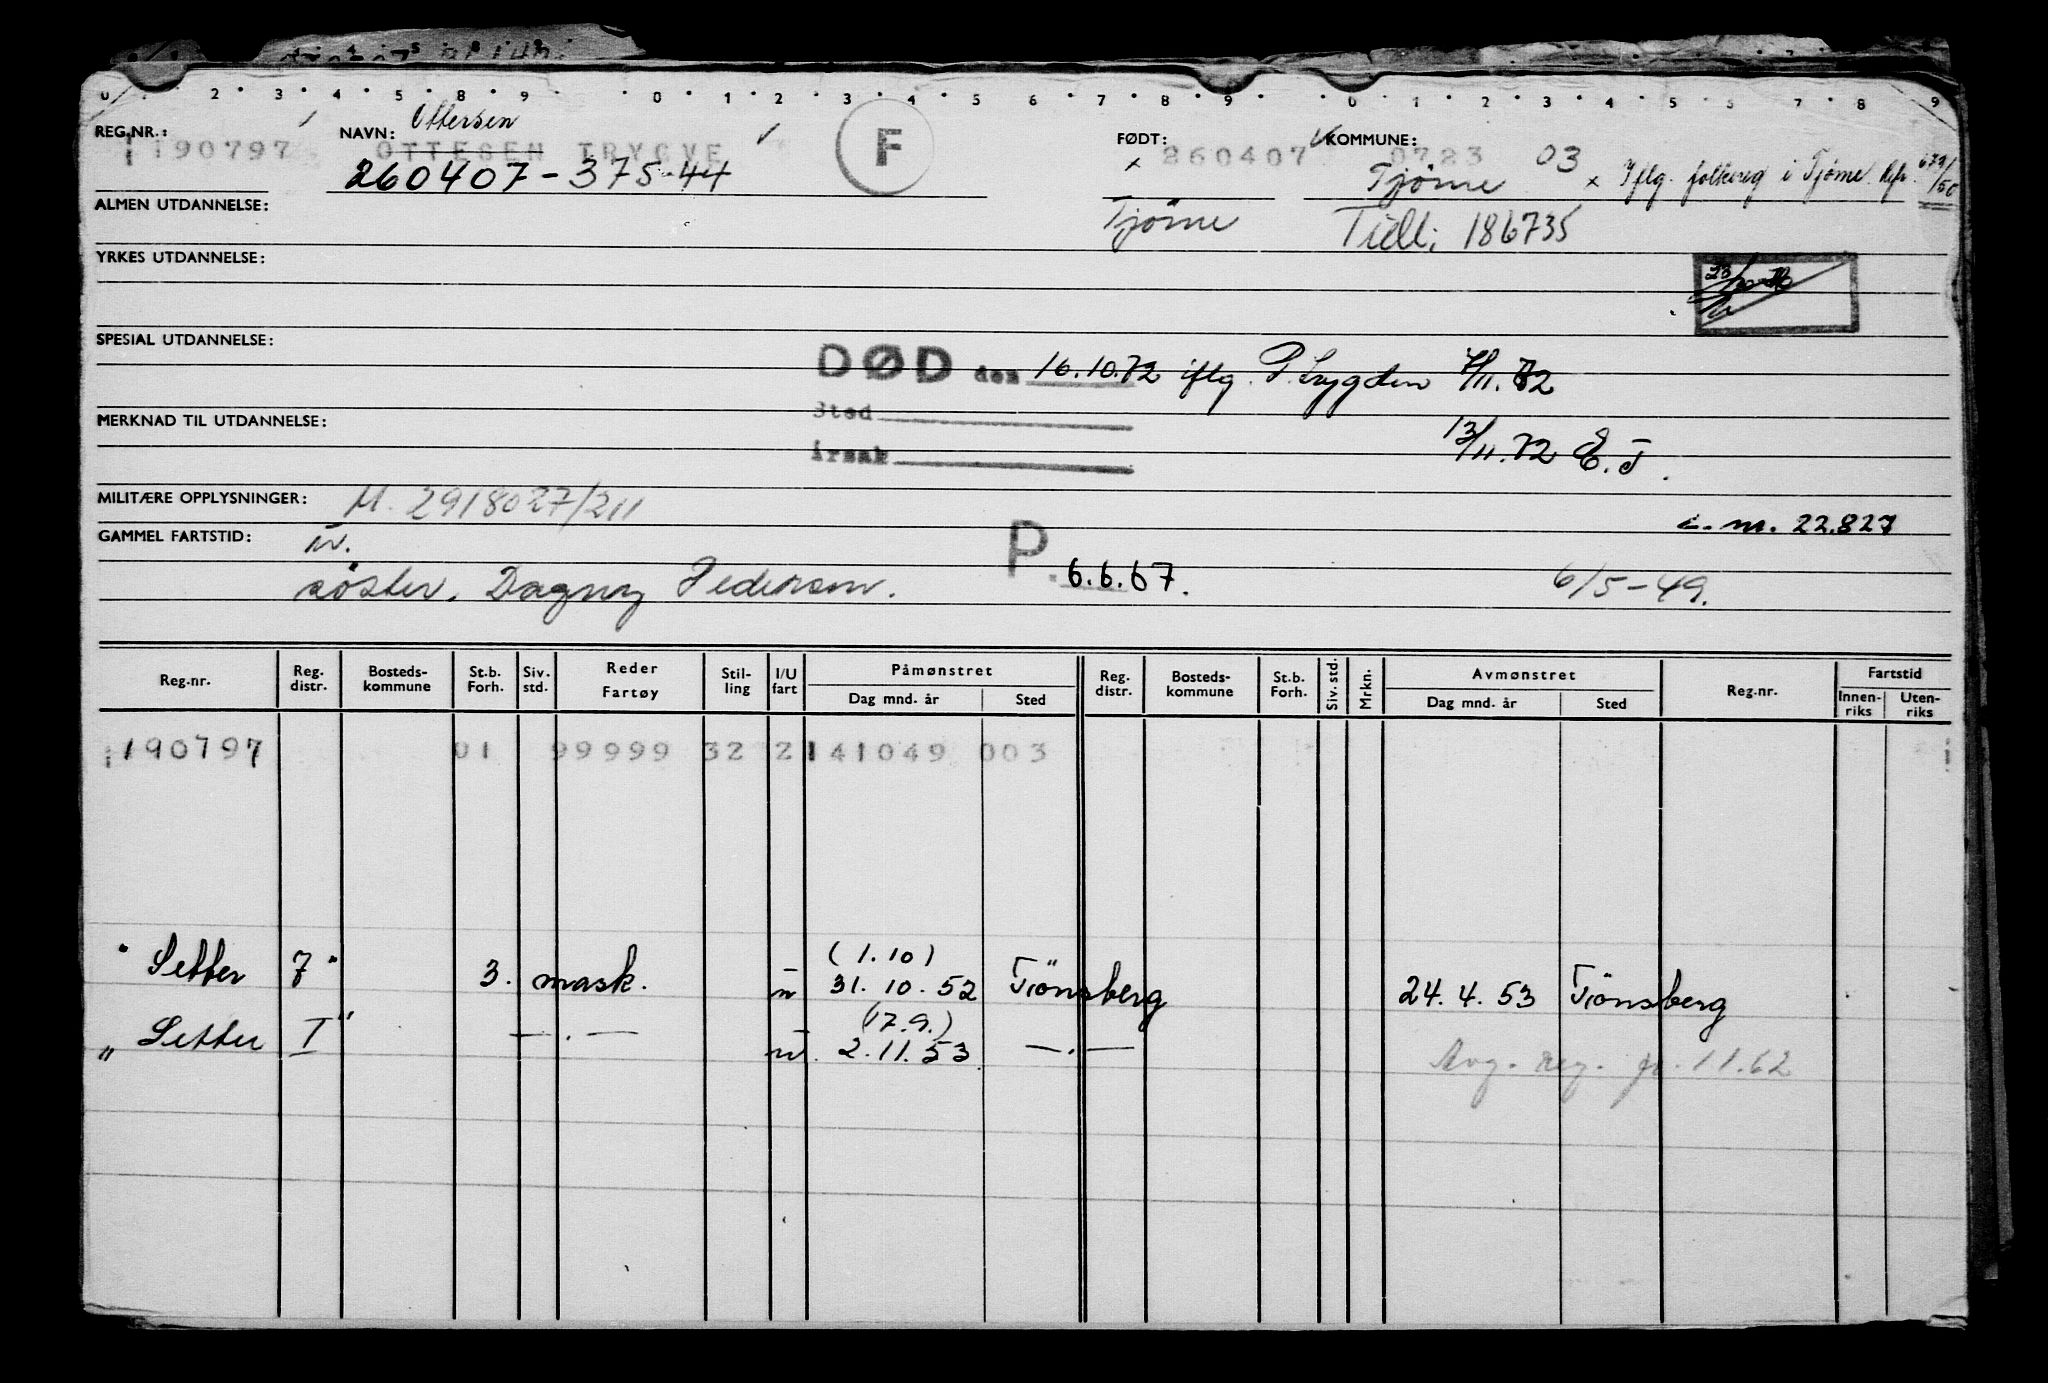 0 2 3 4 5 8 9 0 1 2 3 4 5 6 7 8 9 0 1 2 3 4 5 6 7 8 9
Ottersen
REG.NR.: NAVN: F FØDT: KOMMUNE:
190797 OTTESEN TRYGVE 260407 0723 03
260407-375-44 Tjöme x Iflg. folkereg i Tjöme. 679/50
ALMEN UTDANNELSE: Tjöme Tidl: 186735
YRKES UTDANNELSE:
SPESIAL UTDANNELSE:
DØD den 16.10.72 iflg. P. Trygden 7/11.72
Sted
MERKNAD TIL UTDANNELSE: 13/11.72 E.T.
årsak
MILITÆRE OPPLYSNINGER: M. 2918027/211
L.m. 22.827
GAMMEL FARTSTID: u.
P. 6.6.67.
söster. Dagny Pedersen. 6/5-49.
Reg.nr. Reg. distr. Bosteds-kommune St.b. Forh. Siv. std. Reder Fartøy Stil-ling I/U fart Påmønstret Dag mnd. år Sted Reg. distr. Bosteds-kommune St.b. Forh. Siv. std. Mrkn. Avmønstret Dag mnd. år Sted Reg.nr. Fartstid Innen-riks Uten-riks
190797 01 99999 32 2 141049 003
(1.10)
"Setter 7" 3. mask. u 31.10.52 Tönsberg 24.4.53 Tönsberg
(17.9.)
"Setter I" —.— u. 2.11.53 —.—
Avg. reg. pr. 11.62